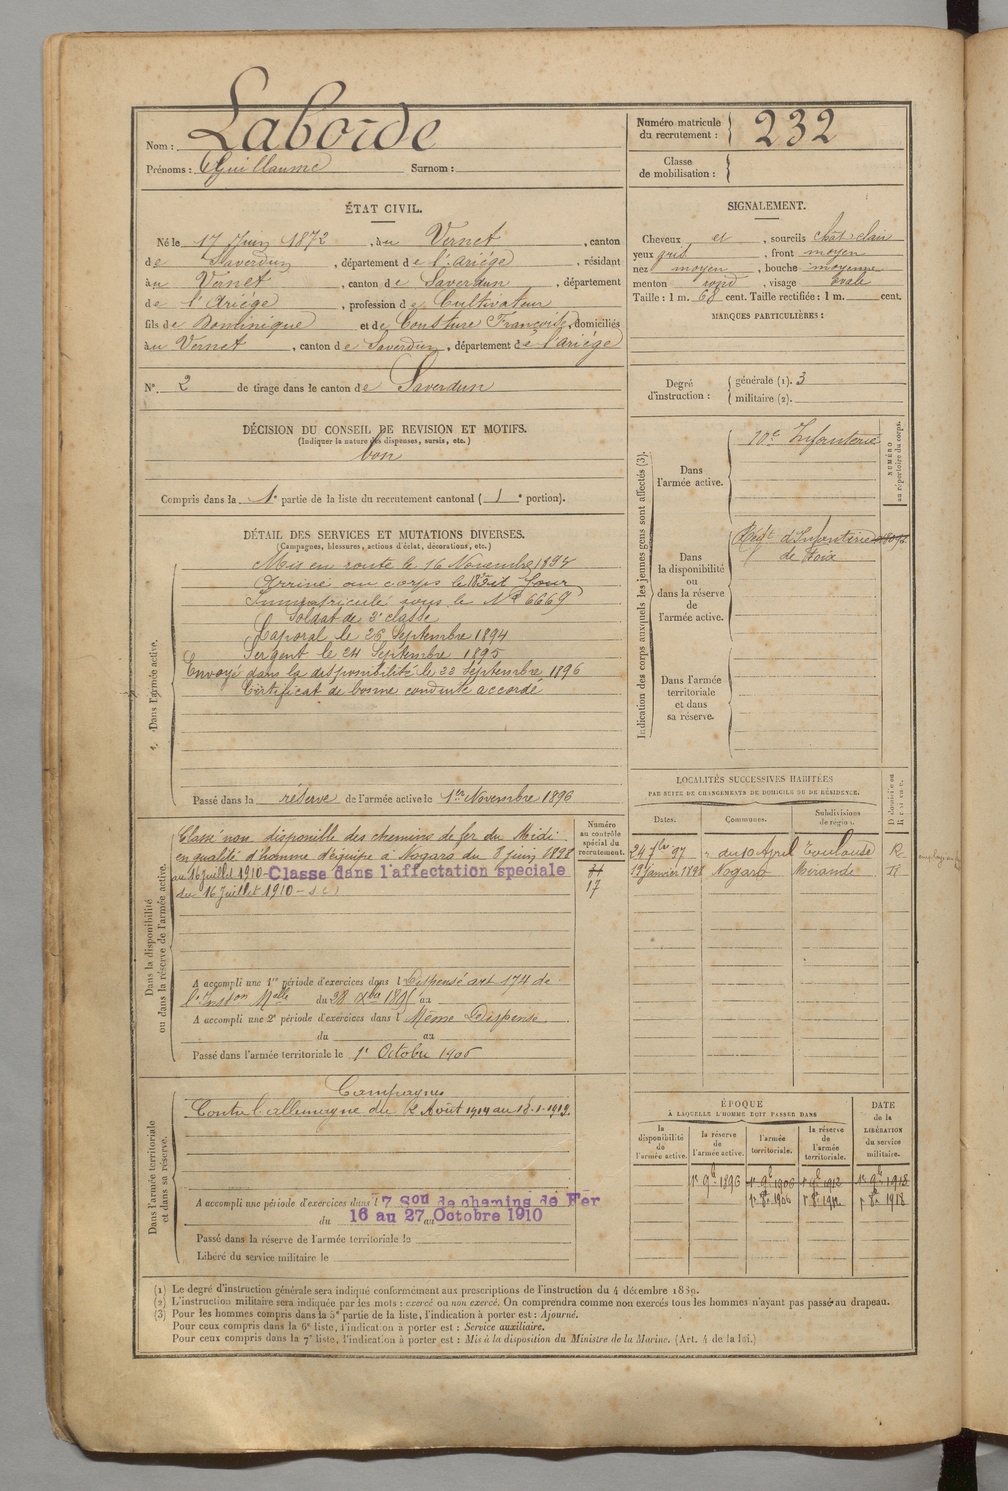 Nom : Laborde
Prénoms : Guillaume Surnom :
Numéro matricule du recrutement : 232
Classe de mobilisation :
ÉTAT CIVIL.
Né le 17 Juin 1872, à u Vernet, canton
de Saverdun, département de l'Ariège, résidant
à u Vernet, canton de Saverdun, département
de l'Ariège, profession de Cultivateur
fils de Dominique et de Cousture Françoise, domiciliés
à u Vernet, canton de Saverdun, département de l'ariège
N° 2 de tirage dans le canton de Saverdun
SIGNALEMENT.
Cheveux et, sourcils chât clair
yeux gris, front moyen
nez moyen, bouche moyenne
menton rond, visage ovale
Taille : 1 m. 68 cent. Taille rectifiée : 1 m. cent.
MARQUES PARTICULIÈRES :
Degré d'instruction : générale (1). 3
militaire (2).
DÉCISION DU CONSEIL DE REVISION ET MOTIFS.
(Indiquer la nature des dispenses, sursis, etc.)
bon
Compris dans la 1e partie de la liste du recrutement cantonal ( 1 e portion).
DÉTAIL DES SERVICES ET MUTATIONS DIVERSES.
(Campagnes, blessures, actions d'éclat, décorations, etc.)
Dans l'armée active.
Mis en route le 16 Novembre 1893
Arrivé au corps le dit Jour
Immatriculé sous le N° 6669
Soldat de 2e classe
Caporal le 26 Septembre 1894
Sergent le 24 Septembre 1895
Envoyé dans la disponibilité le 22 Septembre 1896
Certificat de bonne conduite accordé
Passé dans la réserve de l'armée active le 1er Novembre 1896
Indication des corps auxquels les jeunes gens sont affectés (3).
NUMÉRO au répertoire du corps.
Dans l'armée active.
10e Infanterie
Dans la disponibilité ou dans la réserve de l'armée active.
Régt d'Infanterie
de Foix
Dans l'armée territoriale et dans sa réserve.
LOCALITÉS SUCCESSIVES HABITÉES
PAR SUITE DE CHANGEMENTS DE DOMICILE OU DE RÉSIDENCE.
Dates. Communes. Subdivisions de région. D domicile ou R résidence.
du 10 April Toulouse R
19 Janvier 1898 Nogaro Mirande R
Dans la disponibilité ou dans la réserve de l'armée active.
Numéro au contrôle spécial du recrutement.
17
Classé non disponible des chemins de fer du Midi
en qualité d'homme d'équipe à Nogaro du 8 juin 1898
au 16 juillet 1910 - Classe dans l'affectation speciale
du 16 Juillet 1910 -
A accompli une 1re période d'exercices dans l Dispensé art 174 de
l'Inston Melle du 28 xbre 1895 au
A accompli une 2e période d'exercices dans l Même Dispense
du au
Passé dans l'armée territoriale le 1er Octobre 1906
Dans l'armée territoriale et dans sa réserve.
Campagnes
Contre l'allemagne du 2 Août 1914 au 13-1-1919.
A accompli une période d'exercices dans l 7 Son de chemins de Fer
du 16 au 27 Octobre 1910
Passé dans la réserve de l'armée territoriale le
Libéré du service militaire le
ÉPOQUE
À LAQUELLE L'HOMME DOIT PASSER DANS
DATE de la LIBÉRATION du service militaire.
la disponibilité de l'armée active. la réserve de l'armée active. l'armée territoriale. la réserve de l'armée territoriale.
1er 9bre 1896 1er 9bre 1906 1er 9bre 1912 1er 9bre 1918
1er 8bre 1906 1er 8bre 1912 1er 8bre 1918
(1) Le degré d'instruction générale sera indiqué conformément aux prescriptions de l'instruction du 4 décembre 1889.
(2) L'instruction militaire sera indiquée par les mots : exercé ou non exercé. On comprendra comme non exercés tous les hommes n'ayant pas passé au drapeau.
(3) Pour les hommes compris dans la 5e partie de la liste, l'indication à porter est : Ajourné.
Pour ceux compris dans la 6e liste, l'indication à porter est : Service auxiliaire.
Pour ceux compris dans la 7e liste, l'indication à porter est : Mis à la disposition du Ministre de la Marine. (Art. 4 de la loi.)